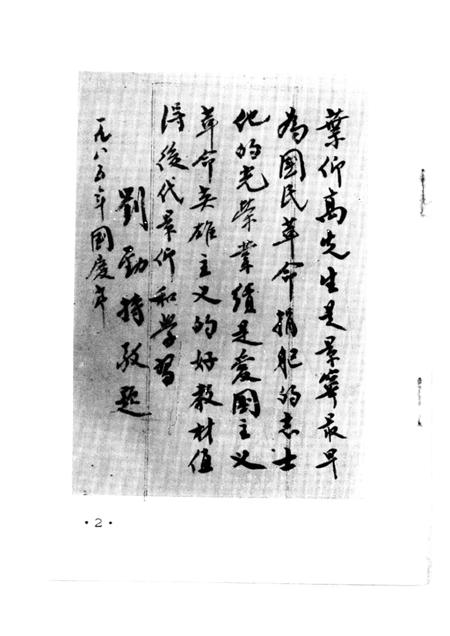 葉仰高先生是景寧最早
為國民革命捐躯的志士
他的光榮業績是愛國主义
革命英雄主义的好教材值
得後代景仰和學習
劉勁持敬题
一九八五年國慶节
·2·